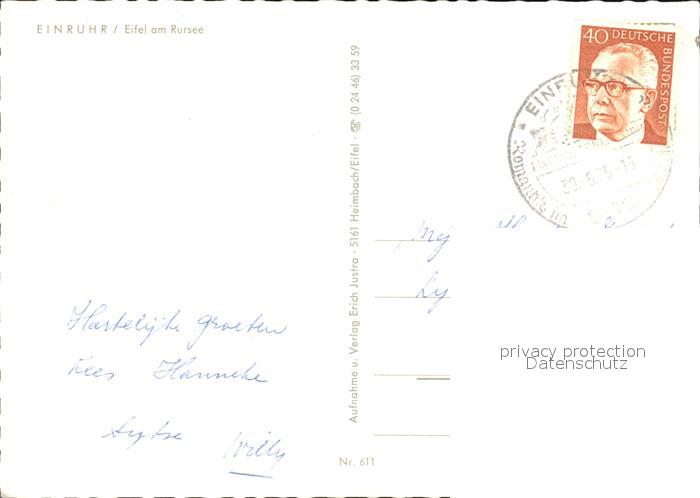 EINRUHR / Eifel am Rursee
40 DEUTSCHE BUNDESPOST
EINRUHR
Romantik im
Aufnahme u. Verlag Erich Justra · 5161 Heimbach/Eifel · ☏ (0 24 46) 33 59
Hartelijke groeten
Kees Hanneke
Sytse Willy
privacy protection
Datenschutz
Nr. 611